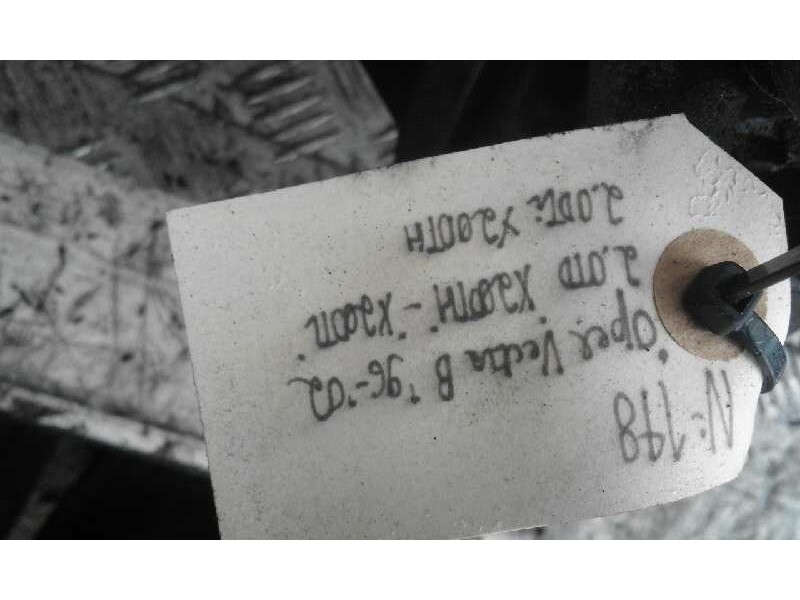 N: 178
Opel Vectra B '96-'02
2.0TD X20DTH - X20DTL
2.0DTi X20DTH